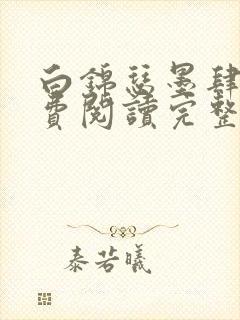 白錦瑟墨肆
費閱讀完整
泰若曦